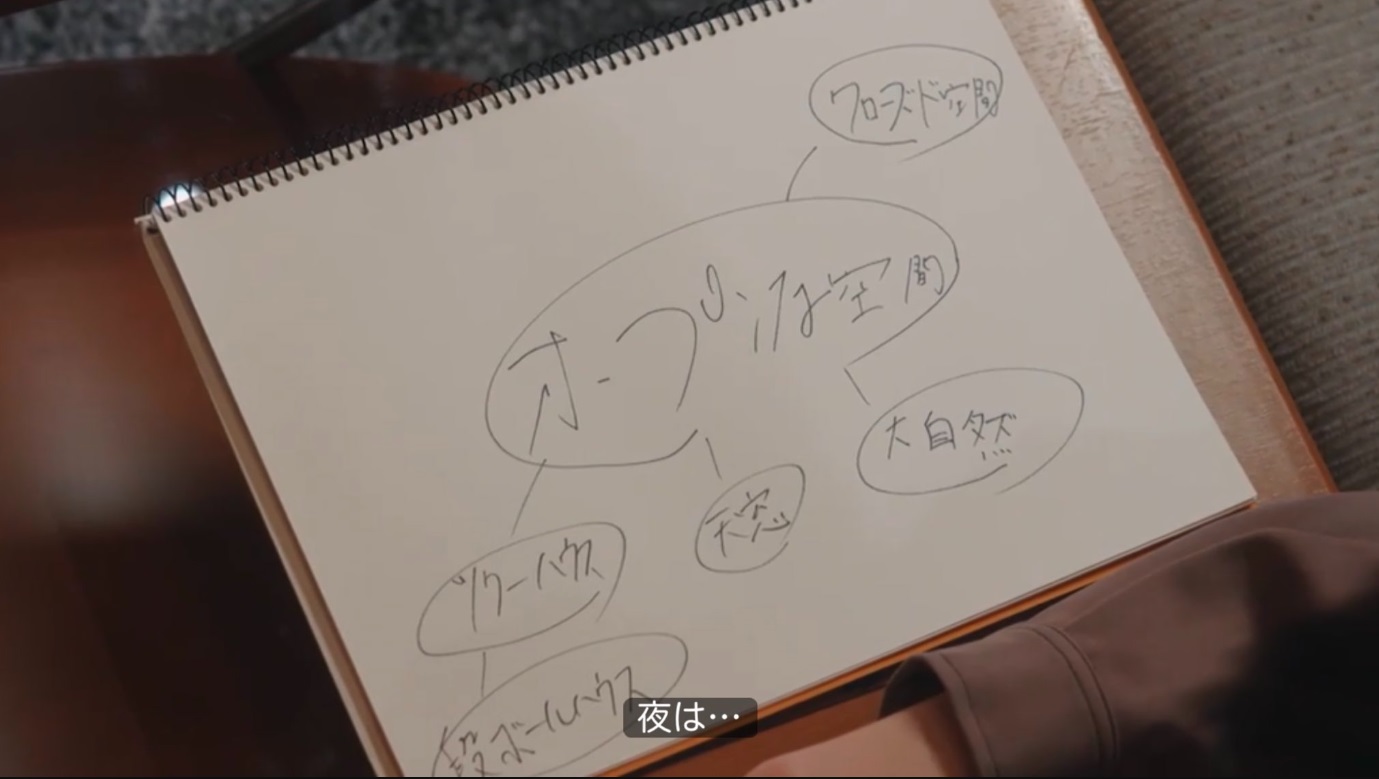 クローズド空間
オープンな空間
大自然
天窓
ツリーハウス
段ボールハウス
夜は…